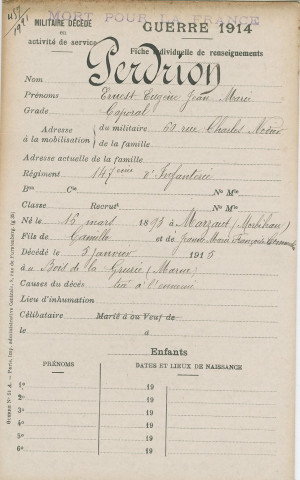 457
1921
MORT POUR LA FRANCE
MILITAIRE DÉCÉDÉ
en
activité de service
GUERRE 1914
Fiche individuelle de renseignements
Perdrion
Nom
Prénoms Ernest Eugène Jean Marie
Grade Caporal
Adresse à la mobilisation { du militaire 60 rue Charles
de la famille
Adresse actuelle de la famille
Régiment 147ème d'Infanterie
Bon Cie No Mle
Classe Recrut No Mle
Né le 15 mars 1893 à Marzan (Morbihan)
Fils de Camille et de Jeanne Marie Françoise
Décédé le 3 janvier 1915
à u Bois de la Grurie (Marne)
Causes du décès tué à l'ennemi
Lieu d'inhumation
Célibataire Marié à ou Veuf de
le à
Enfants
PRÉNOMS DATES ET LIEUX DE NAISSANCE
1º 19
2º 19
3º 19
4º 19
5º 19
6º 19